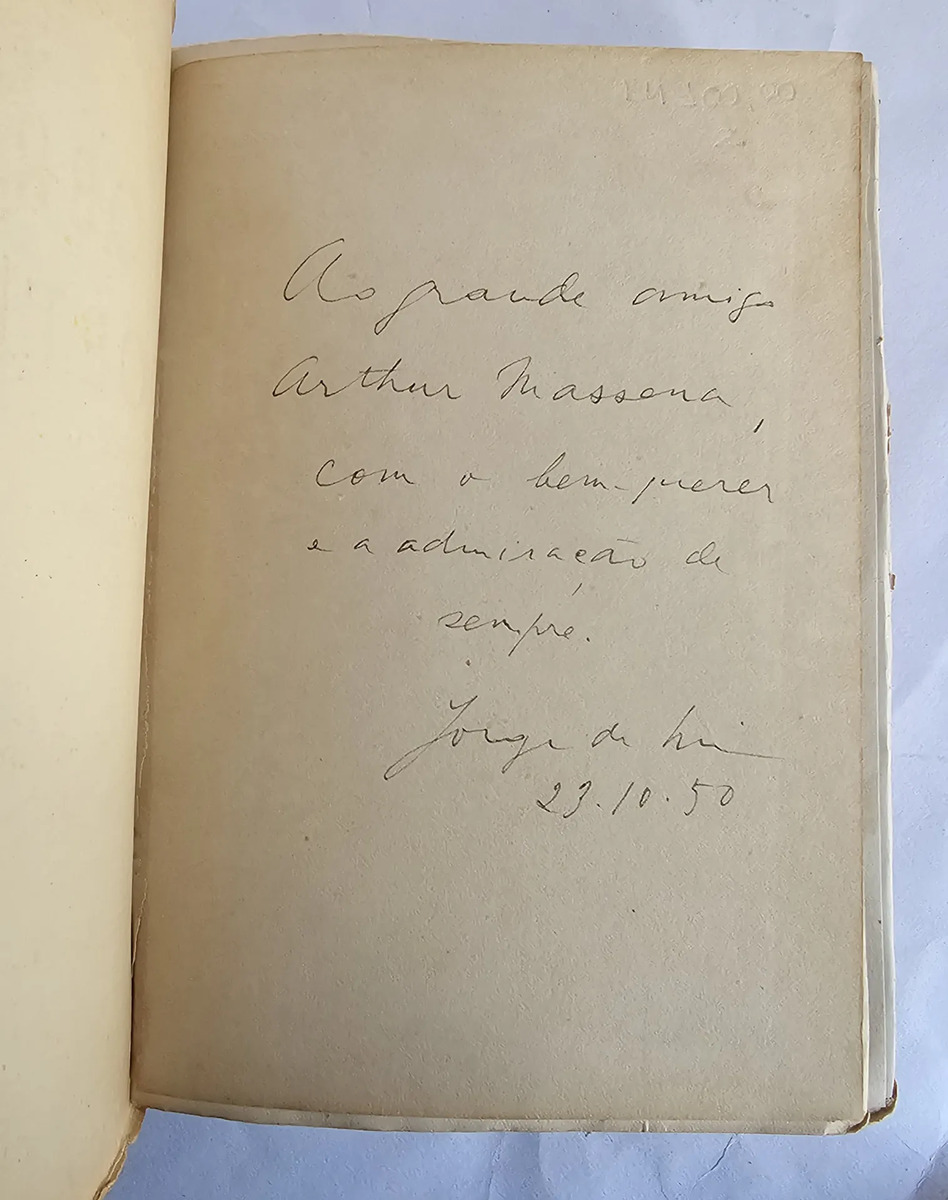 Ao grande amigo
Arthur Massena,
com o bem-querer
e a admiração de
sempre.
Jorge de
23.10.50